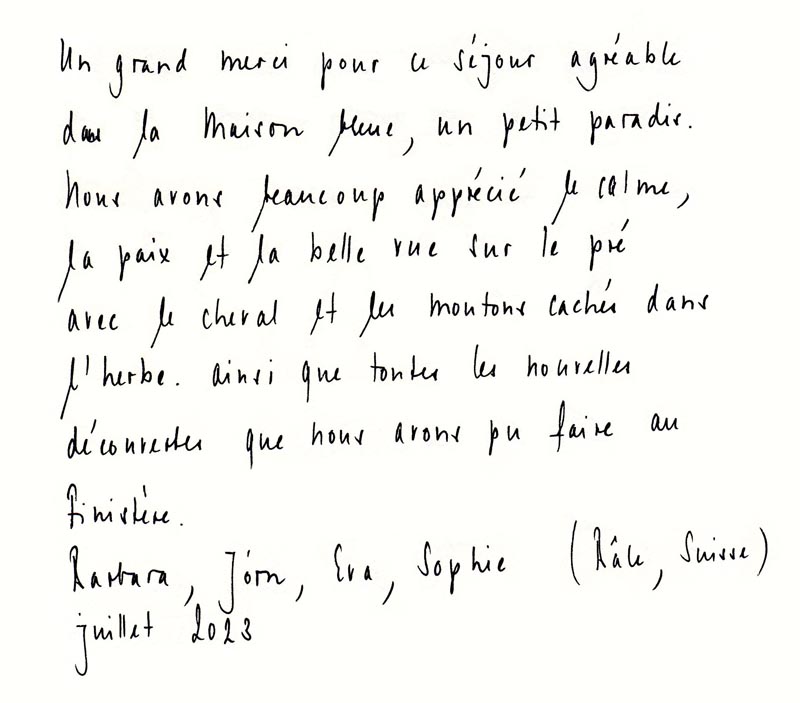 Un grand merci pour ce séjour agréable
dans la Maison bleue, un petit paradis.
Nous avons beaucoup apprécié le calme,
la paix et la belle vue sur le pré
avec le cheval et les moutons cachés dans
l'herbe. ainsi que toutes les nouvelles
découvertes que nous avons pu faire au
Finistère.
Barbara, Jörn, Eva, Sophie (Bâle, Suisse)
juillet 2023